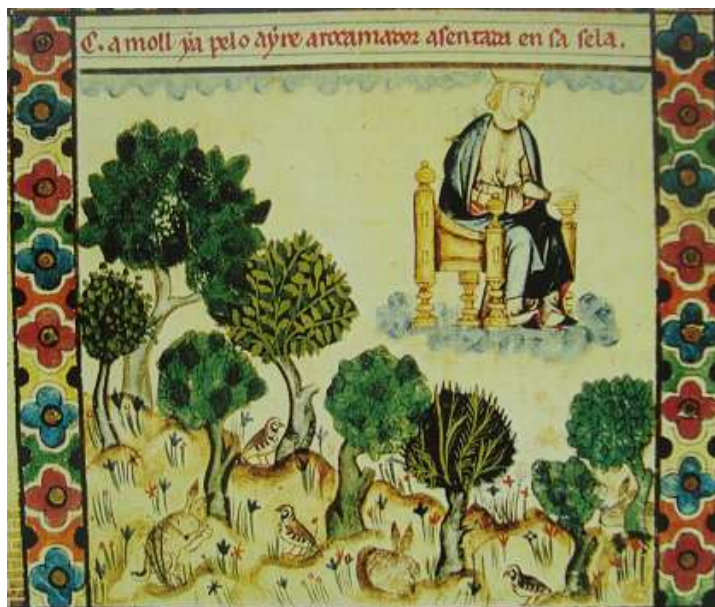 C. a moll ỳa pelo aỳre a rocamador asentada en sa sela.